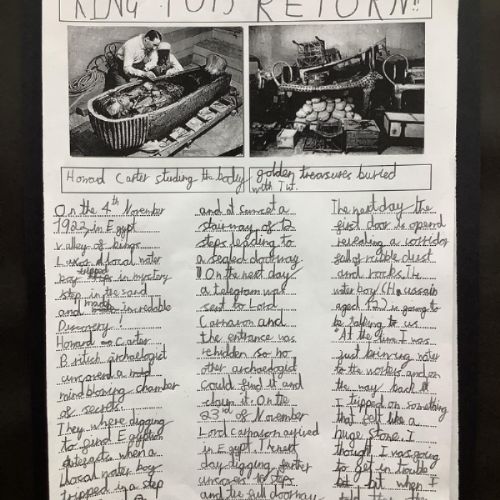 KING TUTS RETURN!!
Howard Carter studing the body
golden treasures buried
with Tut.
On the 4th November
1922 in Egypt
valley of kings
Luxor A local water
boy tripped in mystery
step in the sand
and made incredible
Discovery!
Howard Carter
British archaelogist
uncoverd a
mind blowing chamber
of secrets.
They where digging
to find Egyption
when a
local water boy
tripped in a step
and at sunset a
stairway of 12
steps leading to
a sealed doorway
On the next day
a telegram was
sent to Lord
Carnavon and
the entrance was
rehidden so no
other archaelogist
could find it and
claym it. On the
23rd of November
Lord arrived
in Egypt.
day digging further
uncovers 16 steps
and its full doorway
The next day the
first door is opend
revealing a corridor
full of rubble dust
and rocks. The
water boy (Hussain
aged 12) is going to
be talking to us.
"At the time I was
just bringing water
to the workers and on
the way back
I tripped on something
that felt like a
huge stone. I
thought I was going
to get in trouble
but when I